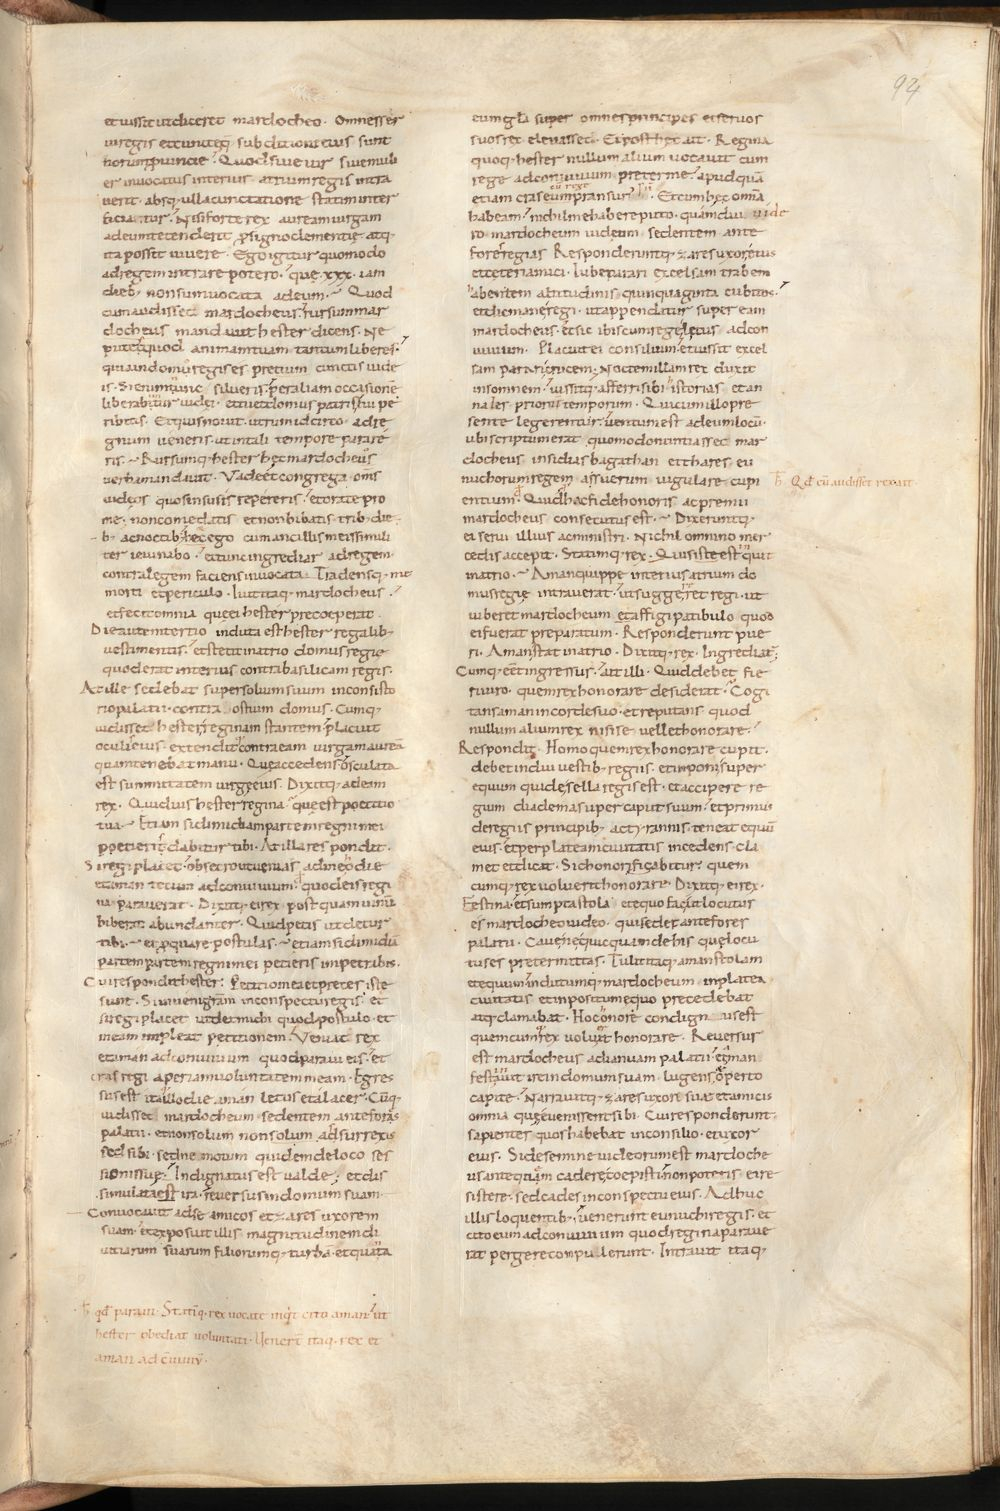 94
et iussit ut diceret mardocheo. Omnes ser
ui regis et cunctęq; sub ditione eius sunt
norunt prouincię. Quod siue uir siue muli
er inuocatus interius atrium regis intra
uerit. absq; ulla cunctatione statim inter
ficiatur. Nisi forte rex auream uirgam
ad eum tetenderit pro signo clementię. atq;
ita possit uiuere. Ego igitur quomodo
ad regem intrare potero. quę xxx. iam
dieb; non sum uocata ad eum. Quod
cum audisset mardocheus. rursum mar
docheus mandauit hester dicens. Ne
putes quod animam tuam tantum liberes.
quia in domu regis es pretium cunctis iude
is. Si enim nunc silueris. per aliam occasionē
liberabuntur iudęi. et tu et domus patris tui pe
ribitis. Et quis nouit utrum idcirco ad re
gnum ueneris. ut in tali tempore parare
ris. Rursumq; hester hęc mardocheo
uerba mandauit. Vade et congrega om̄s
iudęos quos in susis repereris. et orate pro
me. non comedatis et non bibatis trib; die
b; ac noctib; et ego cum ancillis meis simili
ter ieiunabo. et tunc ingrediar ad regem
contra legem faciens inuocata. Tradensq; me
morti et periculo. Iuit itaq; mardocheus.
et fecit omnia quę ei hester precoeperat.
Die autem tertio induta est hester regalib;
uestimentis. et stetit in atrio domus regię
quod erat interius contra basilicam regis.
At ille sedebat super solium suum in consisto
rio palatii. contra ostium domus. Cumq;
uidisset hester reginam stantem. placuit
oculis eius. extendit contra eam uirgam auream
quam tenebat manu. Quę accedens osculata
est summitatem uirgę eius. Dixitq; ad eam
rex. Quid uis hester regina. quę est poetitio
tua. Etiam si dimidiam partem regni mei
poetieris. dabitur tibi. At illa respondit.
Si regi placet. obsecro ut uenias ad me hodie
et aman tecum ad conuiuium. quod eis regi
na parauerat. Dixitq; ei rex postquam uinū
biberat abundanter. Quid petis ut detur
tibi. et pro qua re postulas. etiam si dimidiā
partem regni mei petieris impetrabis.
Cui respondit hester. Petitio mea et preces istę
sunt. Si inueni gratiam in conspectu regis. et
si regi placet ut det michi quod postulo. et
meam impleat petitionem. Veniat rex
et aman ad conuiuium quod paraui eis. et
cras regi aperiam uoluntatem meam. Egres
sus est itaq; illo die aman lętus et alacer. Cumq;
uidisset mardocheum sedentem ante foras
palatii. et non solum non solum adsurrexis
sed sibi. sed ne motum quidem de loco ses
sionis suę. Indignatus est ualde. et dis
simulata ira. reuersus in domum suam.
Conuocauit ad se amicos et zares uxorem
suam. et exposuit illis magnitudinem di
uitiarum suarum filiorumq; turba. et quāta
ħ qd paraui. Statiq; rex uocate inqt cito aman ut
hester obediat uoluntati. Uenert itaq. rex et
aman ad cūuiuiū.
eum gloria super omnes principes et seruos
suos rex eleuasset. Et post hęc ait. Regina
quoq; hester nullum alium uocauit cum
rege ad conuiuium preter me. apud quā
etiam cras cum rege pransurus sum. Et cum hęc omnia
habeam. nichil me habere puto. quamdiu uide
ro mardocheum iudeum sedentem ante
fores regias. Responderuntq; zares uxor eius
et ceteri amici. Iube parari excelsam trabem
habentem altitudinis quinquaginta cubitos.
et dic mane regi. ut appendatur super eam
mardocheus. et sic ibis cum rege lętus ad con
uiuium. Placuit ei consilium. et iussit excel
sam parari crucem. Noctem illam rex duxit
insomnem. iussitq; afferri sibi istorias et an
nales priorum temporum. Qui cum illo pre
sente legerentur. uentum est ad eum locū.
ubi scriptum erat quomodo nuntiasset mar
docheus insidias bagathan et thares. eu
nuchorum regem assuerum uigulare cupi
entium. Quid hoc fidei honoris ac premii
mardocheus consecutus est. Dixeruntq;
ei serui illius ac ministri. Nichil omnino mer
cedis accepit. Statimq; rex. Quis iste est qui
in atrio. Aman quippe interius atrium do
mus regię intrauerat. ut suggereret regi. ut
iuberet mardocheum et affigi patibulo quod
ei fuerat preparatum. Responderunt pue
ri. Aman stat in atrio. Dixitq; rex. Ingrediat;
Cumq; eēt ingressus. ait illi. Quid debet fie
ri uiro. quem rex honorare desiderat. Cogi
tans aman in corde suo. et reputans quod
nullum alium rex nisi se uellet honorare.
Respondit. Homo quem rex honorare cupit.
debet indui uestib; regiis. et imponi super
equum qui de sella regis est. et accipere re
gium diadema super caput suum. et primus
de regiis principib; ac tyrannis. teneat equū
eius. et per plateam ciuitatis incedens. cla
met et dicat. Sic honorificabitur. quem
cumq; rex uoluerit honorare. Dixitq; ei rex.
Festina. et sumpta stola et equo fac ut locutus
es mardocheo iudeo. qui sedet ante fores
palatii. Caue ne quicquam de his quę locu
tus es pretermittas. Tulit itaq; aman stolam
et equum. indutumq; mardocheum in platea
ciuitatis et impositum equo precedebat
atq; clamabat. Hoc honore condignus est
quemcumq; rex uoluerit honorare. Reuersus
est mardocheus ad ianuam palatii. et aman
festinauit ire in domum suam. lugens operto
capite. Narrauitq; zares uxori suę et amicis
omnia quę euenissent sibi. Cui responderunt
sapientes quos habebat in consilio. et uxor
eius. Si de semine iudeorum est mardoche
us ante quem cadere coepisti. non poteris ei re
sistere. sed cades in conspectu eius. Adhuc
illis loquentib; uenerunt eunuchi regis. et
cito eum ad conuiuium quod regina paraue
rat pergere compulerunt. Intrauit itaq;
ħ Qd cū audisset rex ait.